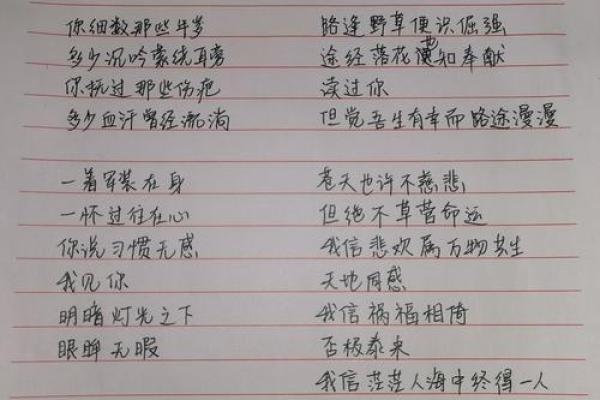 你细数那些年岁
多少沉吟萦绕耳旁
你抚过那些伤疤
多少血汗曾经流淌
一着军装在身
一怀过往在心
你说习惯无感
我见你
明暗灯光之下
眼眸无暇
路逢野草便识倔强
途经落花也知奉献
读过你
但觉吾生有幸而路途漫漫
苍天也许不慈悲
但绝不草菅命运
我信悲欢属万物共生
天地同感
我信祸福相倚
否极泰来
我信茫茫人海中终得一人